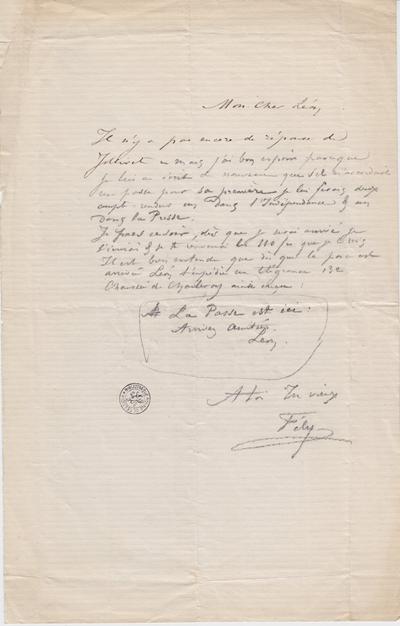 Mon cher Léon
Il n'y a pas encore de réponse de
mais j'ai bon espoir parceque
je lui ai écrit de nouveau que s'il m'accordait
une passe pour sa première je lui ferais deux
compte-rendus un dans l'Indépendance & un
dans la Presse.
Je pars ce soir, dès que je serai arrivé je
t'écrirai & je te enverrai les 110 fr que je
Il est bien entendu que dès que la passe est
arrivée Léon t'expédie un télégramme 132
Chaussée de Charleroy ainsi conçu :
La Passe est ici :
Arrivez
Léon.
A toi Ton vieux
Fély